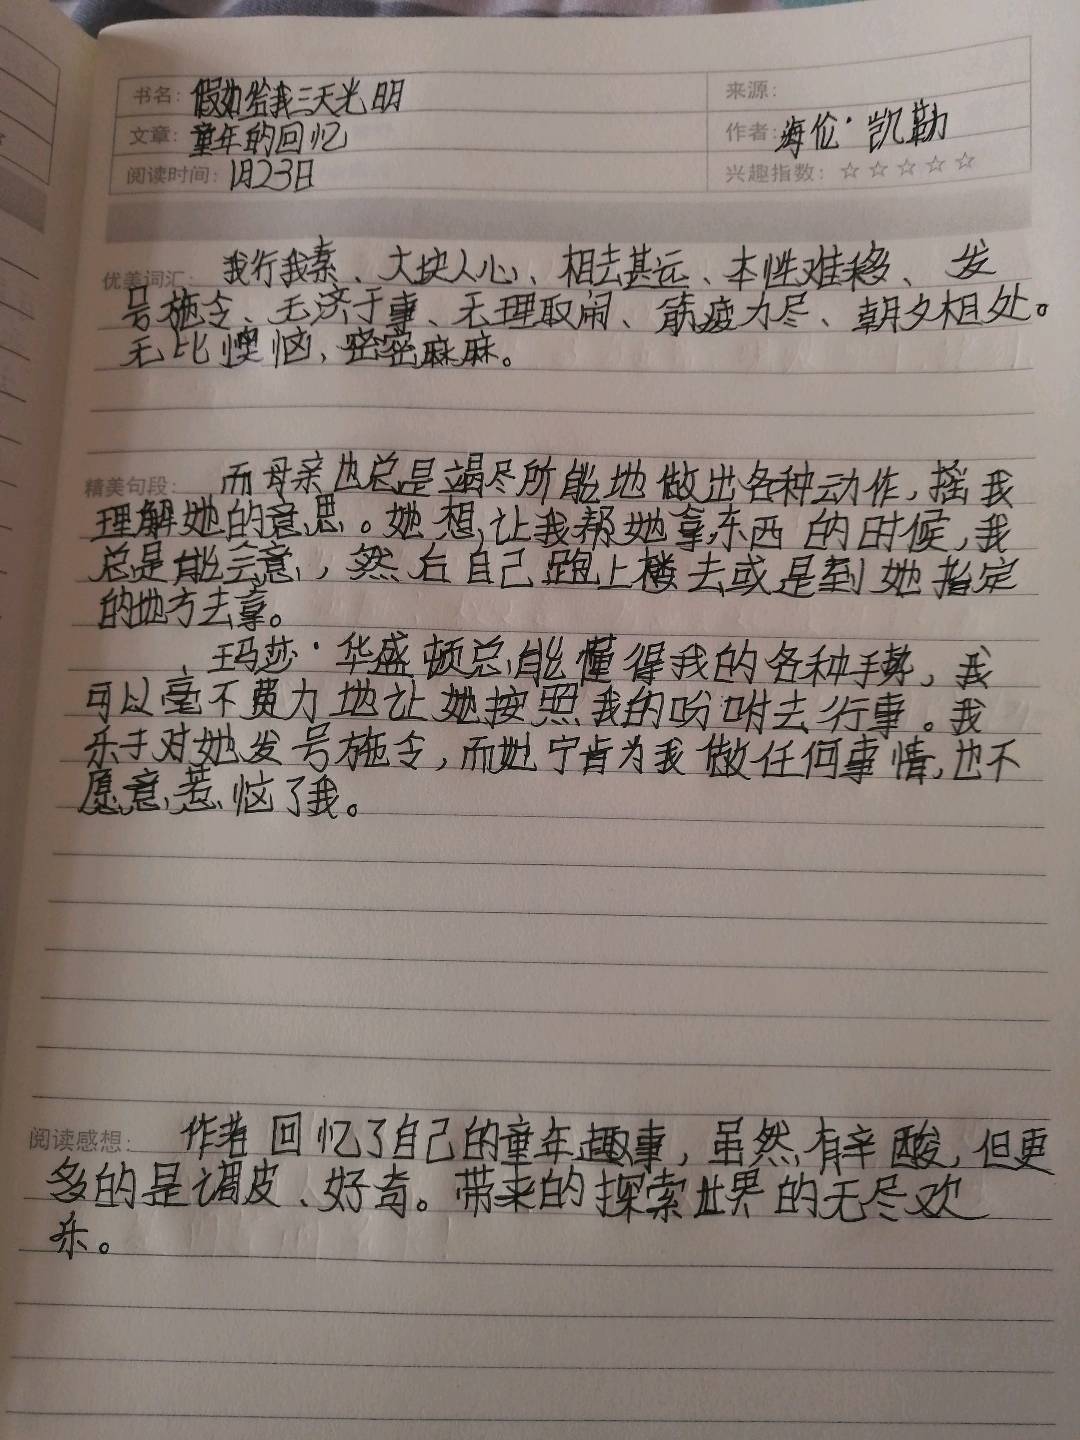 书名：假如给我三天光明
来源：
文章：童年的回忆
作者：海伦·凯勒
阅读时间：1月23日
兴趣指数：☆☆☆☆☆
优美词汇：我行我素、大块人心、相去甚远、本性难移、发
号施令、无济于事、无理取闹、筋疲力尽、朝夕相处。
无比懊恼，密密麻麻。
精美句段：而母亲也总是竭尽所能地做出各种动作，摇我
理解她的意思。她想让我帮她拿东西的时候，我
总是能会意，然后自己跑上楼去或是到她指定
的地方去拿。
玛莎·华盛顿总能懂得我的各种手势，我
可以毫不费力地让她按照我的吩咐去行事。我
乐于对她发号施令，而她宁肯为我做任何事情，也不
愿意惹恼了我。
阅读感想：作者回忆了自己的童年趣事，虽然有辛酸，但更
多的是调皮、好奇。带来的探索世界的无尽欢
乐。